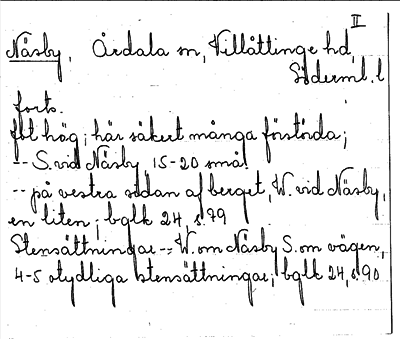 II
Näsby, Årdala sn, Villåttinge hd,
Söderml. l
forts.
fot hög; här säkert många förstörda;
-- S. vid Näsby 15-20 små.
-- på vestra sidan af berget, W. vid Näsby,
en liten; bglk 24, s. 79
Stensättningar -- W. om Näsby S. om vägen,
4-5 otydliga stensättningar; bglk 24, s. 90